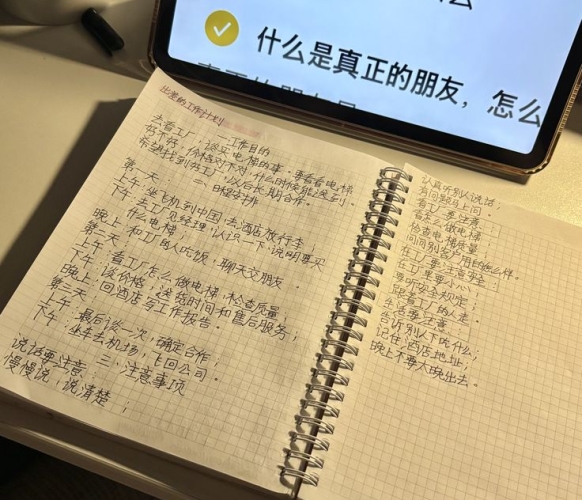 什么是真正的朋友，怎么
出差的工作计划
一、工作目的
去看工厂，谈买电梯的事，要看看电梯
好不好，价格对不对，什么时候能送到。
希望找到好工厂，以后长期合作。
二、日程安排
第一天
上午：坐飞机到中国，去酒店放行李；
下午：去工厂见经理，认识一下，说明要买
什么电梯
晚上：和工厂的人吃饭，聊天交朋友。
第二天
上午：看工厂怎么做电梯，检查质量
下午：谈价格，送货时间和售后服务；
晚上：回酒店写工作报告。
第三天
上午：最后谈一次，确定合作；
下午：坐车去机场，飞回公司。
三、注意事项
说话要注意：
慢慢说，说清楚；
认真听别人说话；
有问题马上问。
看工厂要注意：
看怎么做电梯
检查电梯质量
问问别客户用的怎么样。
在工厂要注意安全
在工厂里要小心
要听安全规定；
跟着工厂的人走。
生活要注意：
告诉别人下吃什么；
记住酒店地址；
晚上不要太晚出去。